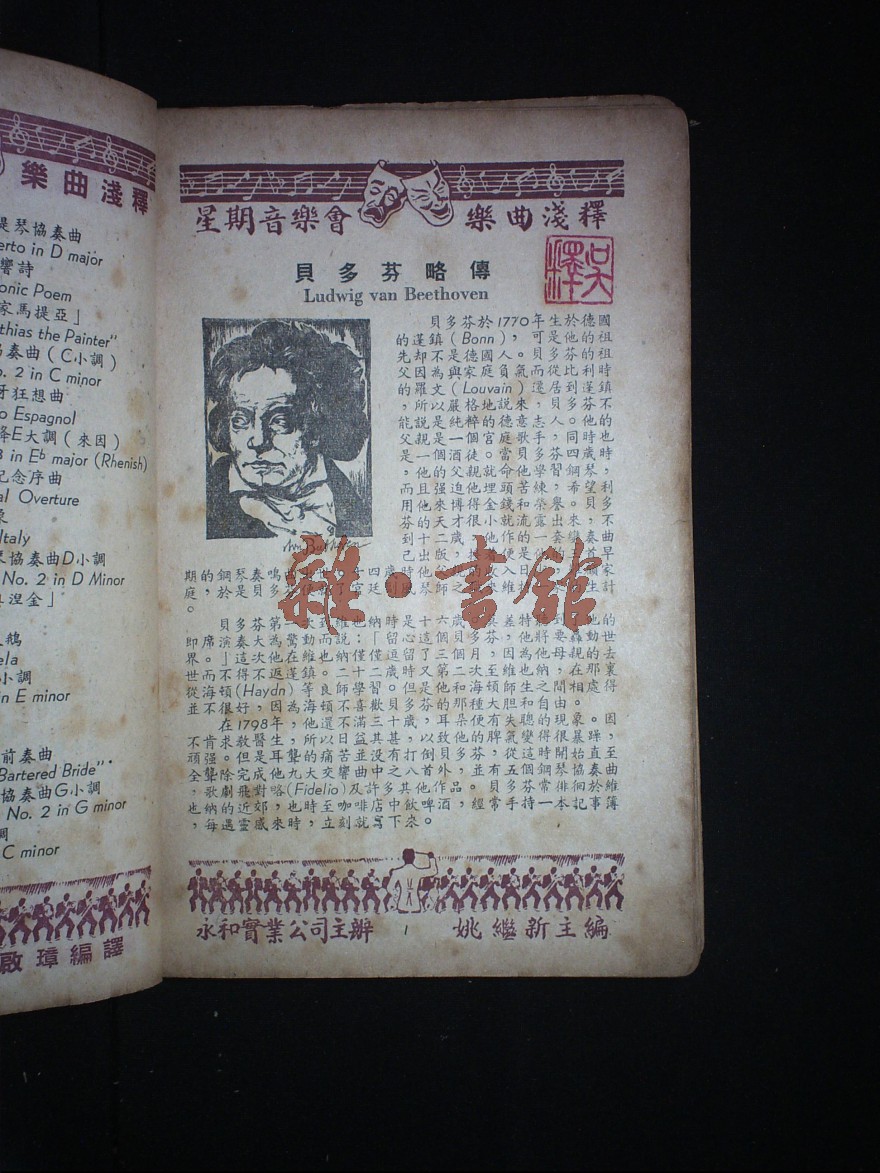 樂曲淺釋
提琴協奏曲
erto in D major
響詩
onic Poem
家馬提亞」
thias the Painter"
奏曲(C小調)
o. 2 in C minor
牙狂想曲
o Espagnol
降E大調(來因)
3 in Eb major (Rhenish)
紀念序曲
al Overture
Italy
協奏曲D小調
No. 2 in D Minor
涅金」
鵝
ela
小調
in E minor
前奏曲
Bartered Bride"
協奏曲G小調
No. 2 in G minor
調
C minor
啟璋編譯
星期音樂會 樂曲淺釋
吳澤
貝多芬略傳
Ludwig van Beethoven
貝多芬於1770年生於德國
的蓬鎮(Bonn),可是他的祖
先却不是德國人。貝多芬的祖
父因為與家庭負氣而從比利時
的羅文(Louvain)遷居到蓬鎮
,所以嚴格地說來,貝多芬不
能說是純粹的德意志人。他的
父親是一個宮庭歌手,同時也
是一個酒徒。當貝多芬四歲時
,他的父親就命他學習鋼琴,
而且强迫他埋頭苦練,希望利
用他來博得金錢和榮譽。貝多
芬的天才很小就流露出來,不
到十二歲,他作的一套變奏曲
已出版,
期的鋼琴奏鳴曲
庭,於是貝多芬
。
雜·書館
貝多芬第一次到維也納時是十六歲
即席演奏大為驚動而說:「留心這個貝多芬,他將要轟動世
界。」這次他在維也納僅僅逗留了三個月,因為他母親的去
世而不得不返蓬鎮。二十二歲時又第二次至維也納,在那裏
從海頓(Haydn)等良師學習。但是他和海頓師生之間相處得
並不很好,因為海頓不喜歡貝多芬的那種大胆和自由。
在1798年,他還不滿三十歲,耳朶便有失聰的現象。因
不肯求敎醫生,所以日益其甚,以致他的脾氣變得很暴躁,
頑强。但是耳聾的痛苦並没有打倒貝多芬,從這時開始直至
全聾除完成他九大交響曲中之八首外,並有五個鋼琴協奏曲
,歌劇飛對略(Fidelio)及許多其他作品。貝多芬常徘徊於維
也納的近郊,也時至咖啡店中飲啤酒,經常手持一本記事簿
,每遇靈感來時,立刻就寫下來。
永和實業公司主辦 1 姚繼新主編